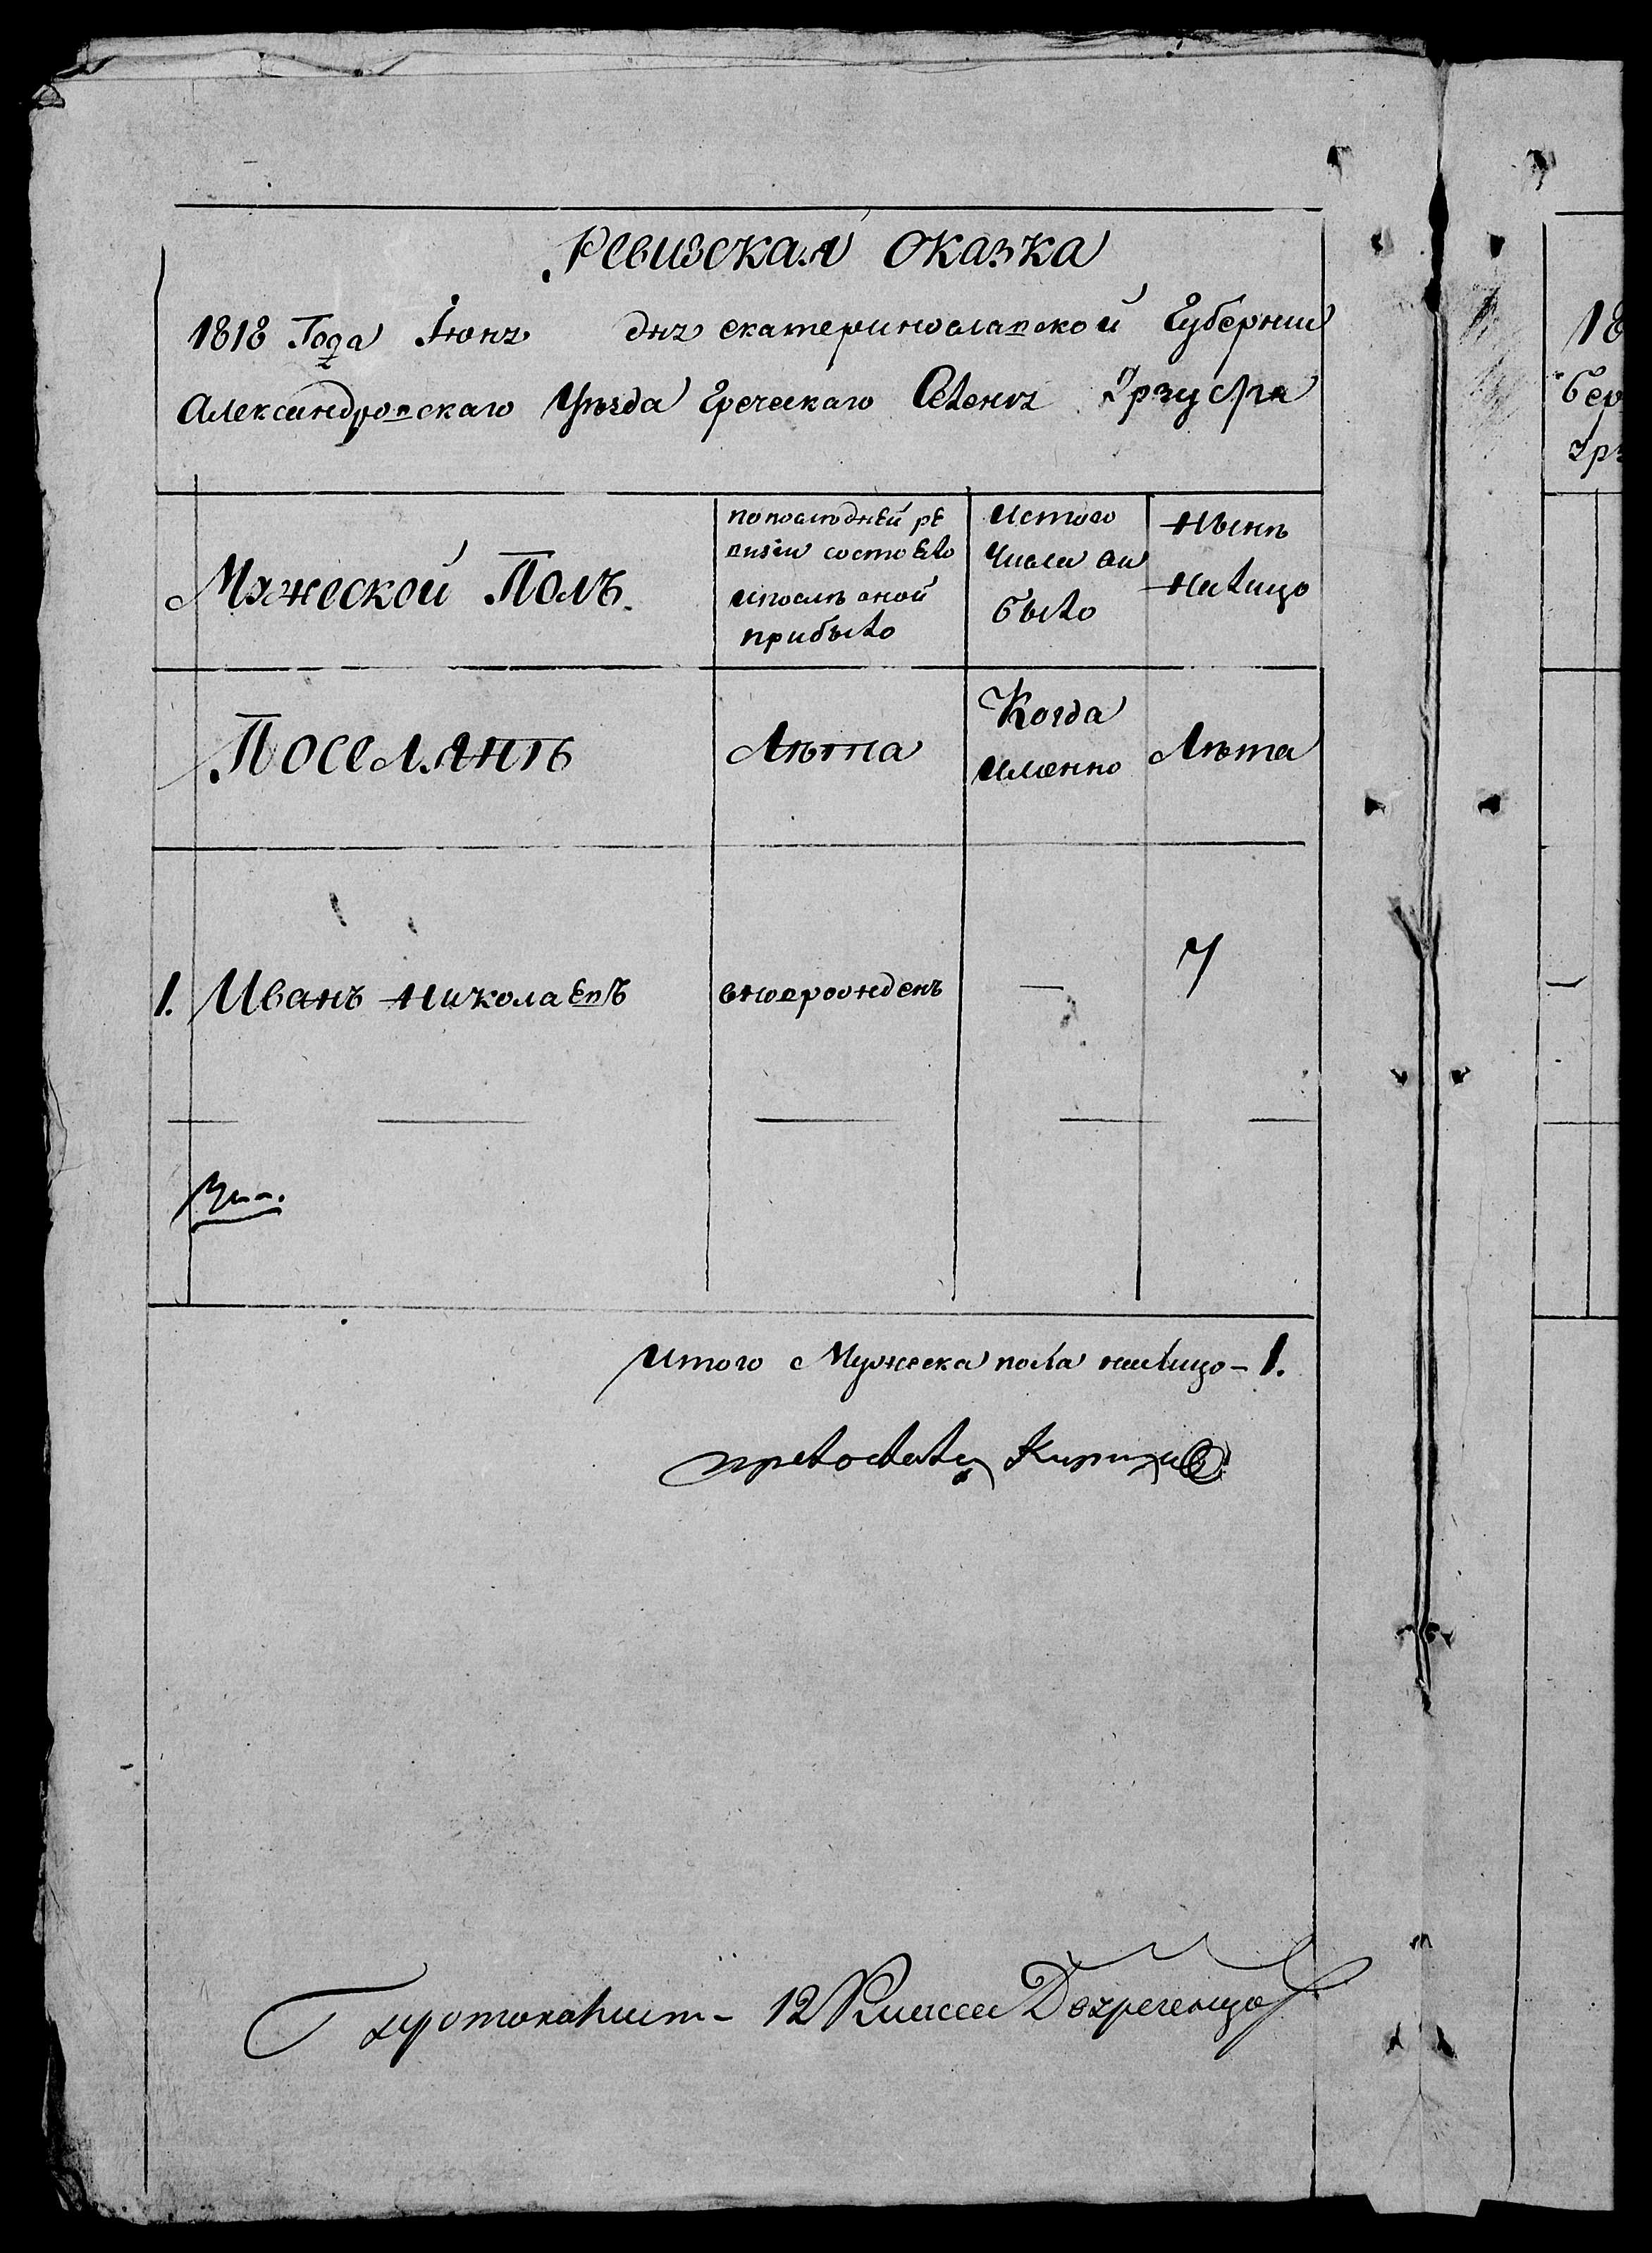 Ревизская сказка
1818 Года Iюнъ днъ екатеринославской Губернии
Александровскаго Уѣзда Греческаго Селенъя Урзуфа
Мужеской Полъ.
По последней ре
визiи состояло
ипослѣ оной
прибыло
Истого
Числа вы
было
Нынѣ
Налицо
Поселянъ
Лѣта
Когда
именно
Лѣта
1. Иванъ Николаевъ
вноврожденъ
—
7
Итого Мужеска пола налицо – 1.
12 Класса
18
бер